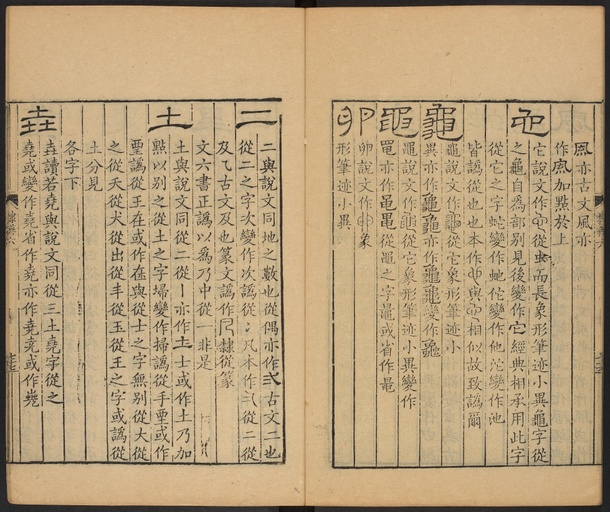 風亦古文風亦
作風加點於上
它
它說文作從虫而長象形筆迹小異龜字從
之龜自為部别見後變作它經典相承用此字
從它之字蛇變作虵佗變作他沱變作池
皆譌從也也本作與相似故致譌爾
龜
龜說文作從它象形筆迹小
異亦作龜亦作變作
黽
黽說文作從它象形筆迹小異變作
黽亦作黽從黽之字鼂或省作
卵
卵說文作象
形筆迹小異
二
二與說文同地之數也從偶亦作弍古文二也
從二之字次變作次譌從冫凡本作從二從
及乁古文及也篆文譌作隸從篆
文六書正譌以爲乃中從一非是
土
土與說文同從二從丨亦作土士或作土乃加
點以别之從土之字埽變作掃譌從手垔或作
垔譌從王在或作在與從士之字無别從大從
之從夭從犬從出從丰從玉從王之字或譌從
土分見
各字下
垚
垚讀若堯與說文同從三土堯字從之
堯或變作堯省作亦作或作
隸辨六